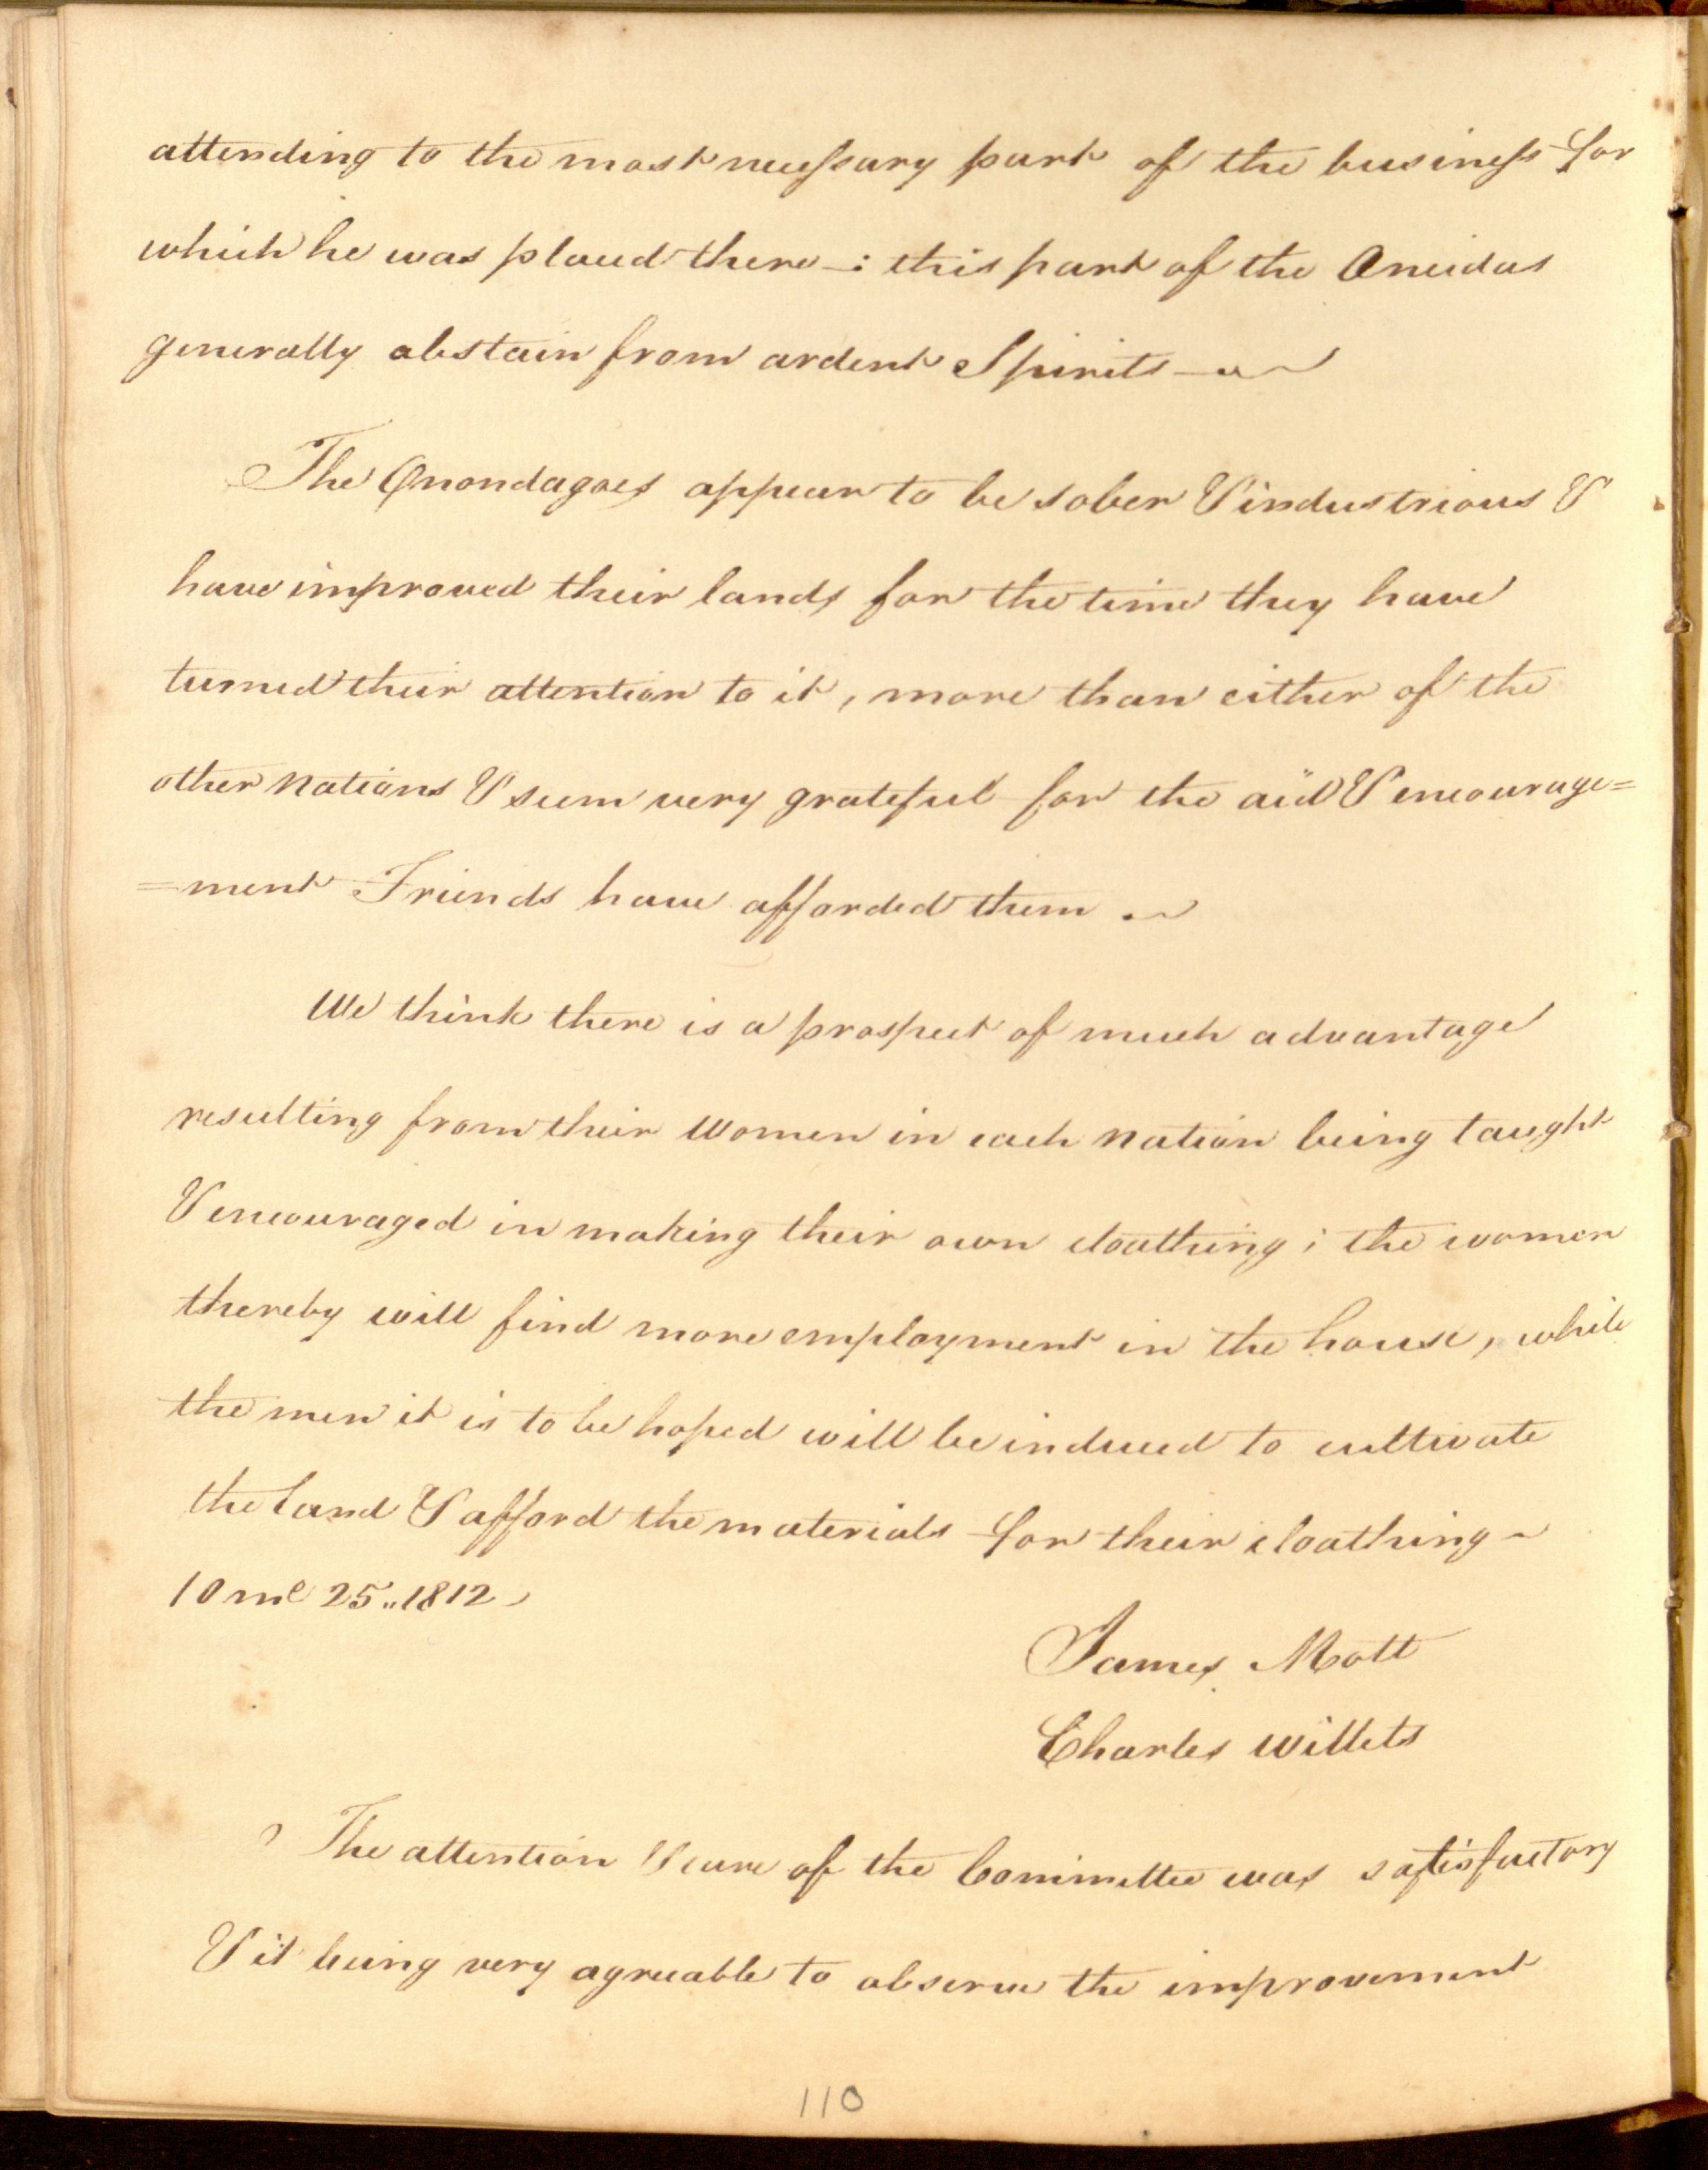 attending to the most necessary part of the business for
which he was placed there -: this part of the Oneidas
generally abstain from ardent Spirits
The Onondagoes appear to be sober & industrious &
have improved their lands for the time they have
turned their attention to it, more than either of the
other Nations & seem very grateful for the aid & encourage=
=ment Friends have afforded them.
We think there is a prospect of much advantage
resulting from their Women in each Nation being taught
& encouraged in making their own cloathing; the women
thereby will find more employment in the house, while
the men it is to be hoped will be induced to cultivate
the land & afford the materials for their cloathing
10 mo 25.. 1812
James Mott
Charles Willets
The attention & care of the Committee was satisfactory
& it being very agreeable to observe the improvement
110